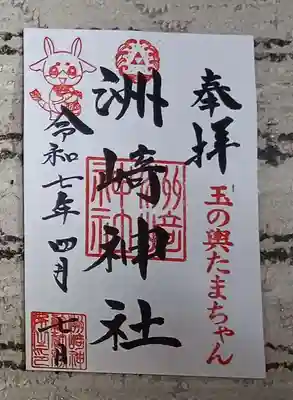 奉拝
玉の輿たまちゃん
洲崎神社
洲崎神社
令和七年四月七日